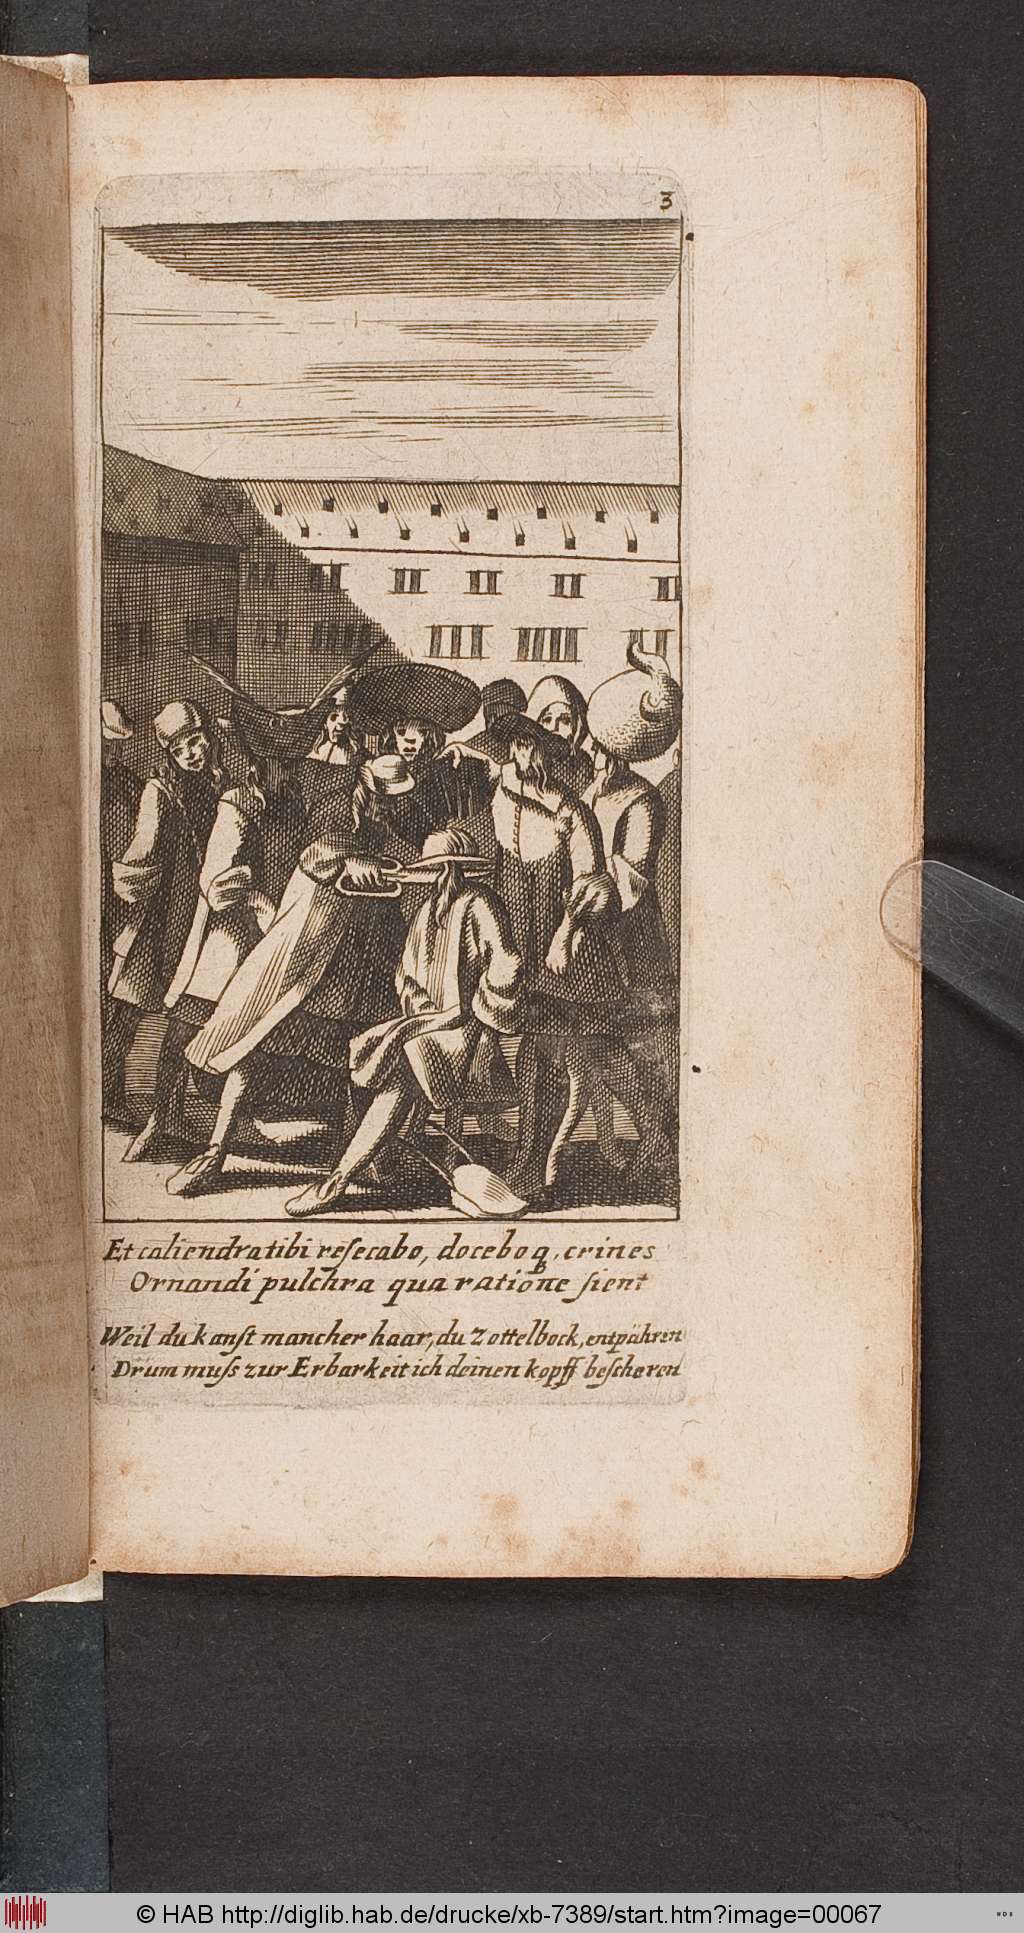 3
Et caliendra tibi resecabo, docebo q, crines
Ornandi pulchra qua ratione sient
Weil du kanst mancher haar, du Zottelbock, entpähren
Drüm muss zur Erbarkeit ich deinen kopff bescheren
© HAB http://diglib.hab.de/drucke/xb-7389/start.htm?image=00067